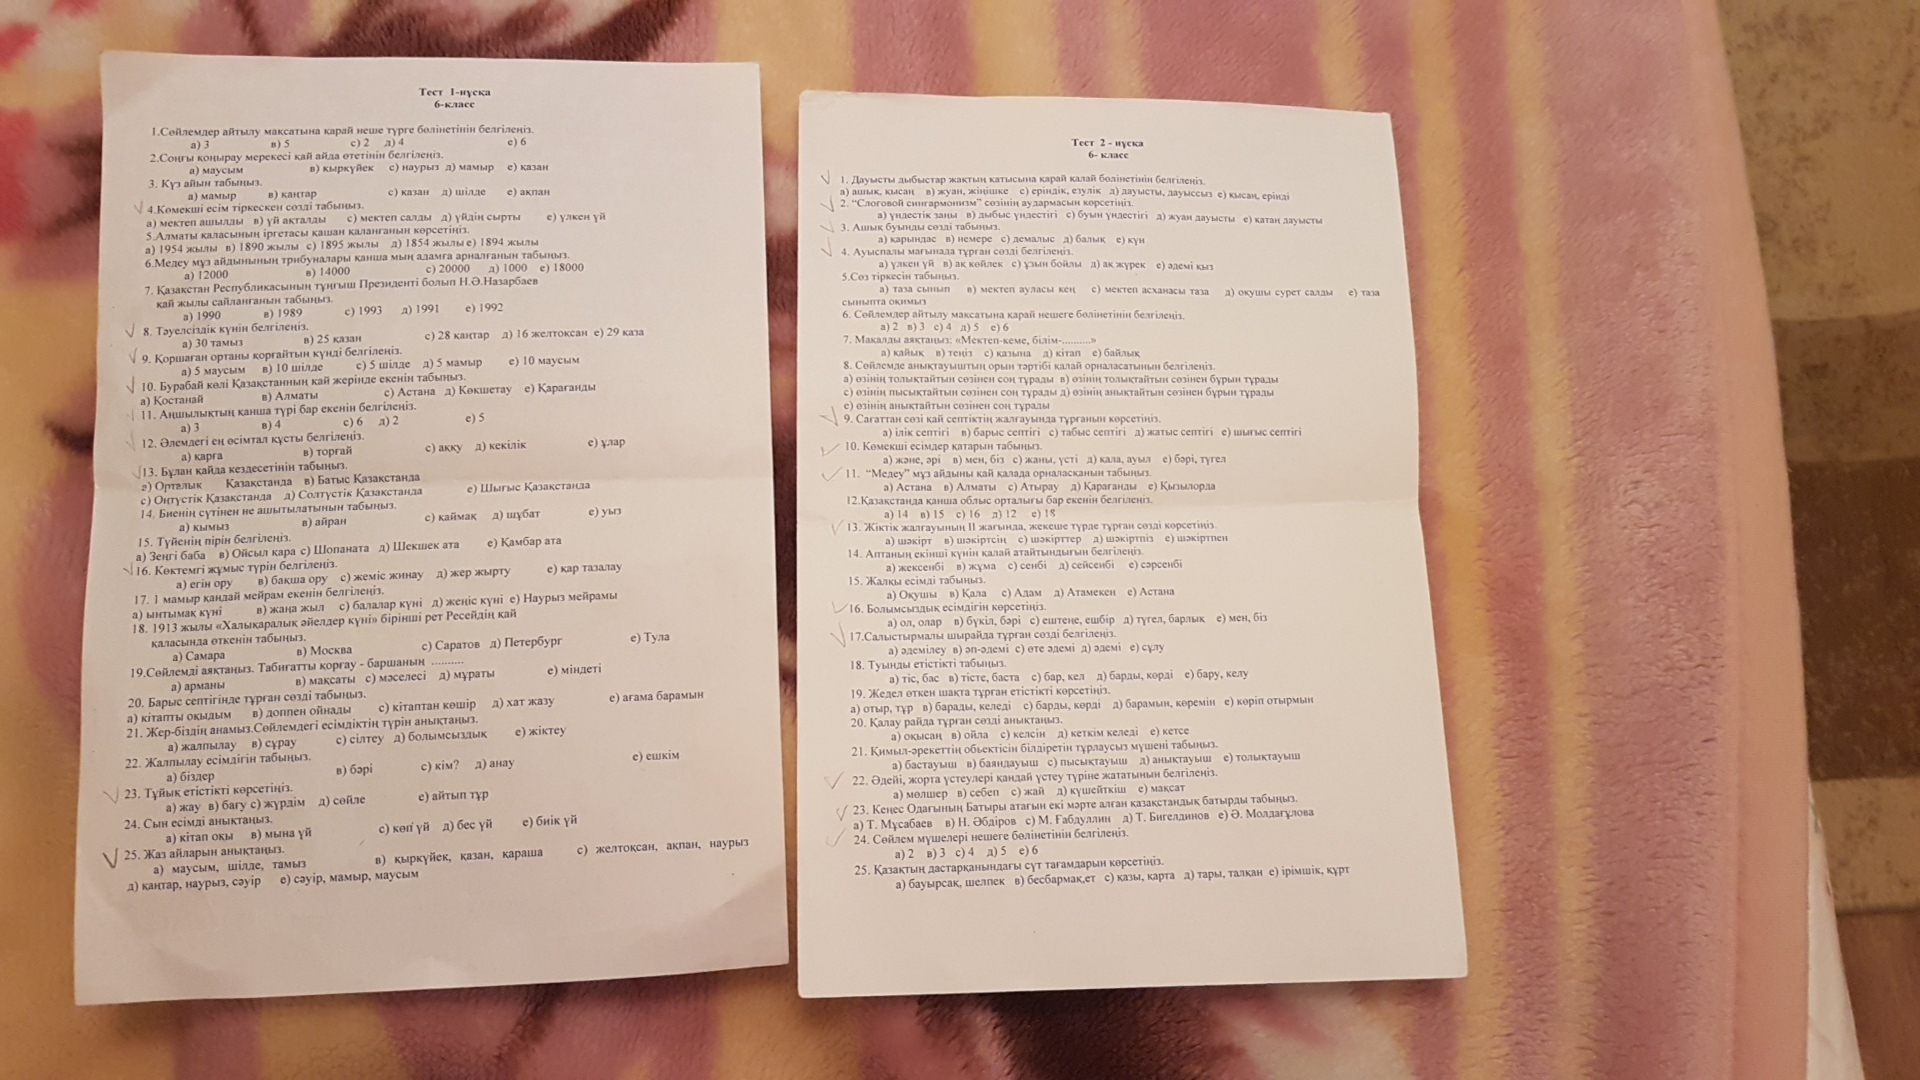 Тест 1-нұсқа
6-класс
1.Сөйлемдер айтылу мақсатына қарай неше түрге бөлінетінін белгілеңіз.
а) 3 в) 5 с) 2 д) 4 е) 6
2.Соңғы қоңырау мерекесі қай айда өтетінін белгілеңіз.
а) маусым в) қыркүйек с) наурыз д) мамыр е) қазан
3. Күз айын табыңыз.
а) мамыр в) қаңтар с) қазан д) шілде е) ақпан
4.Көмекші есім тіркескен сөзді табыңыз.
а) мектеп ашылды в) үй ақталды с) мектеп салды д) үйдің сырты е) үлкен үй
5.Алматы қаласының іргетасы қашан қаланғанын көрсетіңіз.
а) 1954 жылы в) 1890 жылы с) 1895 жылы д) 1854 жылы е) 1894 жылы
6.Медеу мұз айдынының трибуналары қанша мың адамға арналғанын табыңыз.
а) 12000 в) 14000 с) 20000 д) 1000 е) 18000
7. Қазақстан Республикасының тұңғыш Президенті болып Н.Ә.Назарбаев
қай жылы сайланғанын табыңыз.
а) 1990 в) 1989 с) 1993 д) 1991 е) 1992
8. Тәуелсіздік күнін белгілеңіз.
а) 30 тамыз в) 25 қазан с) 28 қаңтар д) 16 желтоқсан е) 29 қаза
9. Қоршаған ортаны қорғайтын күнді белгілеңіз.
а) 5 маусым в) 10 шілде с) 5 шілде д) 5 мамыр е) 10 маусым
10. Бурабай көлі Қазақстанның қай жерінде екенін табыңыз.
а) Қостанай в) Алматы с) Астана д) Көкшетау е) Қарағанды
11. Аңшылықтың қанша түрі бар екенін белгілеңіз.
а) 3 в) 4 с) 6 д) 2 е) 5
12. Әлемдегі ең өсімтал құсты белгілеңіз.
а) қарға в) торғай с) аққу д) кекілік е) ұлар
13. Бұлан қайда кездесетінін табыңыз.
а) Орталық Қазақстанда в) Батыс Қазақстанда
с) Оңтүстік Қазақстанда д) Солтүстік Қазақстанда е) Шығыс Қазақстанда
14. Биенің сүтінен не ашытылатынын табыңыз.
а) қымыз в) айран с) қаймақ д) шұбат е) уыз
15. Түйенің пірін белгілеңіз.
а) Зеңгі баба в) Ойсыл қара с) Шопаната д) Шекшек ата е) Қамбар ата
16. Көктемгі жұмыс түрін белгілеңіз.
а) егін ору в) бақша ору с) жеміс жинау д) жер жырту е) қар тазалау
17. 1 мамыр қандай мейрам екенін белгілеңіз.
а) ынтымақ күні в) жаңа жыл с) балалар күні д) жеңіс күні е) Наурыз мейрамы
18. 1913 жылы «Халықаралық әйелдер күні» бірінші рет Ресейдің қай
қаласында өткенін табыңыз.
а) Самара в) Москва с) Саратов д) Петербург е) Тула
19.Сөйлемді аяқтаңыз. Табиғатты қорғау - баршаның ..........
а) арманы в) мақсаты с) мәселесі д) мұраты е) міндеті
20. Барыс септігінде тұрған сөзді табыңыз.
а) кітапты оқыдым в) доппен ойнады с) кітаптан көшір д) хат жазу е) ағама барамын
21. Жер-біздің анамыз.Сөйлемдегі есімдіктің түрін анықтаңыз.
а) жалпылау в) сұрау с) сілтеу д) болымсыздық е) жіктеу
22. Жалпылау есімдігін табыңыз.
а) біздер в) бәрі с) кім? д) анау е) ешкім
23. Тұйық етістікті көрсетіңіз.
а) жау в) бағу с) жүрдім д) сөйле е) айтып тұр
24. Сын есімді анықтаңыз.
а) кітап оқы в) мына үй с) көп үй д) бес үй е) биік үй
25. Жаз айларын анықтаңыз.
а) маусым, шілде, тамыз в) қыркүйек, қазан, қараша с) желтоқсан, ақпан, наурыз
д) қаңтар, наурыз, сәуір е) сәуір, мамыр, маусым
Тест 2 - нұсқа
6- класс
1. Дауысты дыбыстар жақтың қатысына қарай қалай бөлінетінін белгілеңіз.
а) ашық, қысаң в) жуан, жіңішке с) еріндік, езулік д) дауысты, дауыссыз е) қысаң, ерінді
2. “Слоговой сингармонизм” сөзінің аудармасын көрсетіңіз.
а) үндестік заңы в) дыбыс үндестігі с) буын үндестігі д) жуан дауысты е) қатаң дауысты
3. Ашық буынды сөзді табыңыз.
а) қарындас в) немере с) демалыс д) балық е) күн
4. Ауыспалы мағынада тұрған сөзді белгілеңіз.
а) үлкен үй в) ақ көйлек с) ұзын бойлы д) ақ жүрек е) әдемі қыз
5.Сөз тіркесін табыңыз.
а) таза сынып в) мектеп ауласы кең с) мектеп асханасы таза д) оқушы сурет салды е) таза
сыныпта оқимыз
6. Сөйлемдер айтылу мақсатына қарай нешеге бөлінетінін белгілеңіз.
а) 2 в) 3 с) 4 д) 5 е) 6
7. Мақалды аяқтаңыз: «Мектеп-кеме, білім-..........»
а) қайық в) теңіз с) қазына д) кітап е) байлық
8. Сөйлемде анықтауыштың орын тәртібі қалай орналасатынын белгілеңіз.
а) өзінің толықтайтын сөзінен соң тұрады в) өзінің толықтайтын сөзінен бұрын тұрады
с) өзінің пысықтайтын сөзінен соң тұрады д) өзінің анықтайтын сөзінен бұрын тұрады
е) өзінің анықтайтын сөзінен соң тұрады
9. Сағаттан сөзі қай септіктің жалғауында тұрғанын көрсетіңіз.
а) ілік септігі в) барыс септігі с) табыс септігі д) жатыс септігі е) шығыс септігі
10. Көмекші есімдер қатарын табыңыз.
а) және, әрі в) мен, біз с) жаны, үсті д) қала, ауыл е) бәрі, түгел
11. “Медеу” мұз айдыны қай қалада орналасқанын табыңыз.
а) Астана в) Алматы с) Атырау д) Қарағанды е) Қызылорда
12.Қазақстанда қанша облыс орталығы бар екенін белгілеңіз.
а) 14 в) 15 с) 16 д) 12 е) 18
13. Жіктік жалғауының II жағында, жекеше түрде тұрған сөзді көрсетіңіз.
а) шәкірт в) шәкіртсің с) шәкірттер д) шәкіртпіз е) шәкіртпен
14. Аптаның екінші күнін қалай атайтындығын белгілеңіз.
а) жексенбі в) жұма с) сенбі д) сейсенбі е) сәрсенбі
15. Жалқы есімді табыңыз.
а) Оқушы в) Қала с) Адам д) Атамекен е) Астана
16. Болымсыздық есімдігін көрсетіңіз.
а) ол, олар в) бүкіл, бәрі с) ештеңе, ешбір д) түгел, барлық е) мен, біз
17.Салыстырмалы шырайда тұрған сөзді белгілеңіз.
а) әдемілеу в) әп-әдемі с) өте әдемі д) әдемі е) сұлу
18. Туынды етістікті табыңыз.
а) тіс, бас в) тісте, баста с) бар, кел д) барды, көрді е) бару, келу
19. Жедел өткен шақта тұрған етістікті көрсетіңіз.
а) отыр, тұр в) барады, келеді с) барды, көрді д) барамын, көремін е) көріп отырмын
20. Қалау райда тұрған сөзді анықтаңыз.
а) оқысаң в) ойла с) келсін д) кеткім келеді е) кетсе
21. Қимыл-әрекеттің обьектісін білдіретін тұрлаусыз мүшені табыңыз.
а) бастауыш в) баяндауыш с) пысықтауыш д) анықтауыш е) толықтауыш
22. Әдейі, жорта үстеулері қандай үстеу түріне жататынын белгілеңіз.
а) мөлшер в) себеп с) жай д) күшейткіш е) мақсат
23. Кеңес Одағының Батыры атағын екі мәрте алған қазақстандық батырды табыңыз.
а) Т. Мұсабаев в) Н. Әбдіров с) М. Ғабдуллин д) Т. Бигелдинов е) Ә. Молдағұлова
24. Сөйлем мүшелері нешеге бөлінетінін белгілеңіз.
а) 2 в) 3 с) 4 д) 5 е) 6
25. Қазақтың дастарқанындағы сүт тағамдарын көрсетіңіз.
а) бауырсақ, шелпек в) бесбармақ,ет с) қазы, қарта д) тары, талқан е) ірімшік, құрт